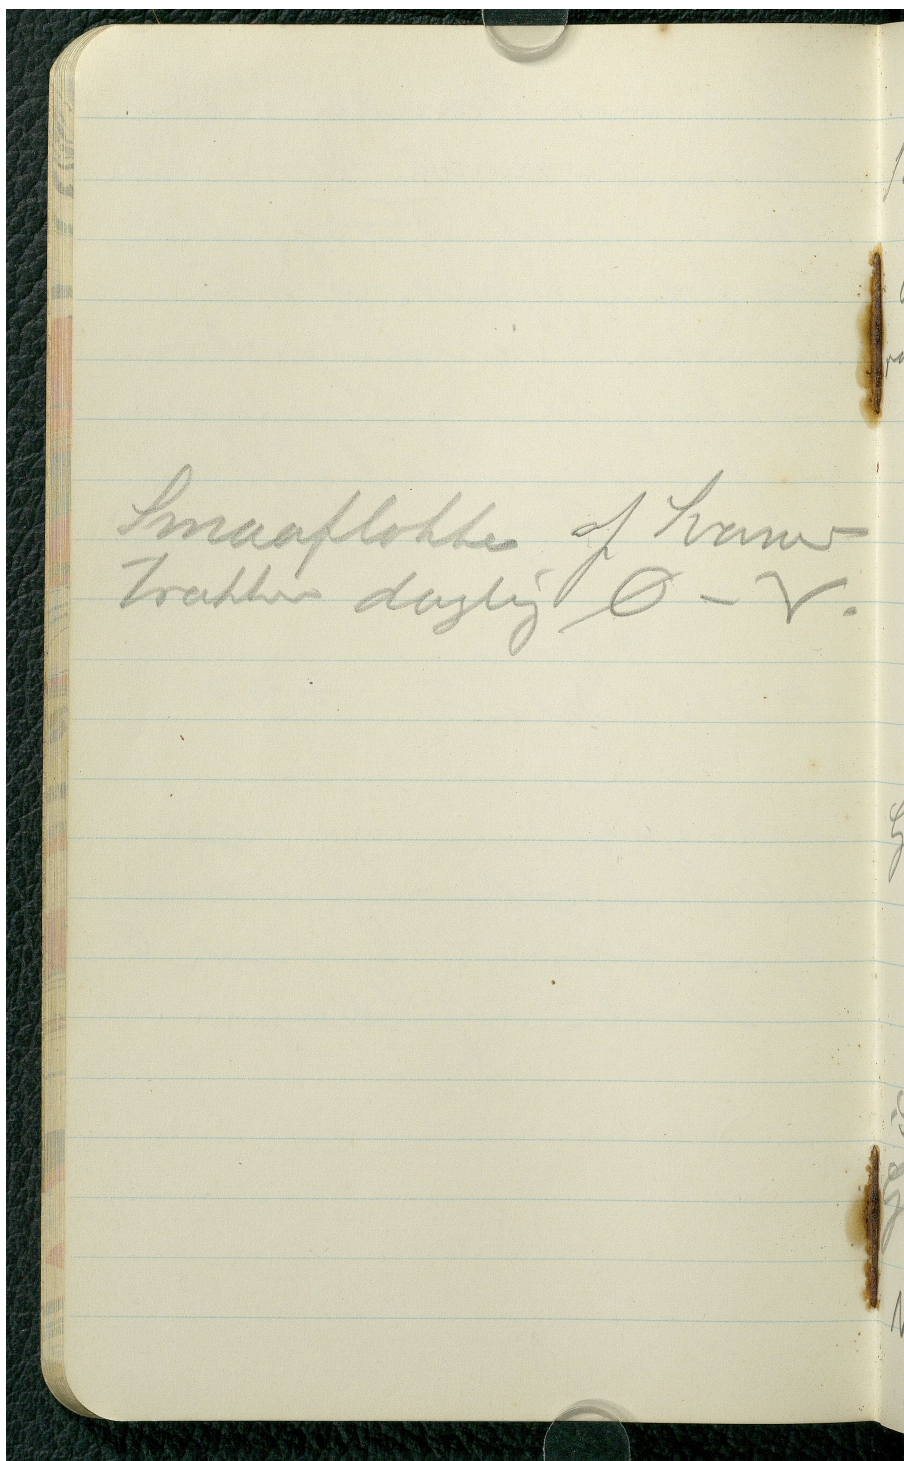 Smaaflokke af Svaner
trækker daglig Ø - V.